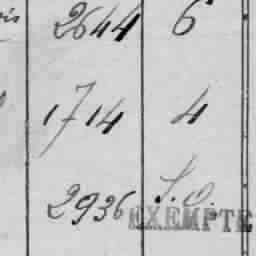 2644 6
1714 4
2936 S.O.
EXEMPTE